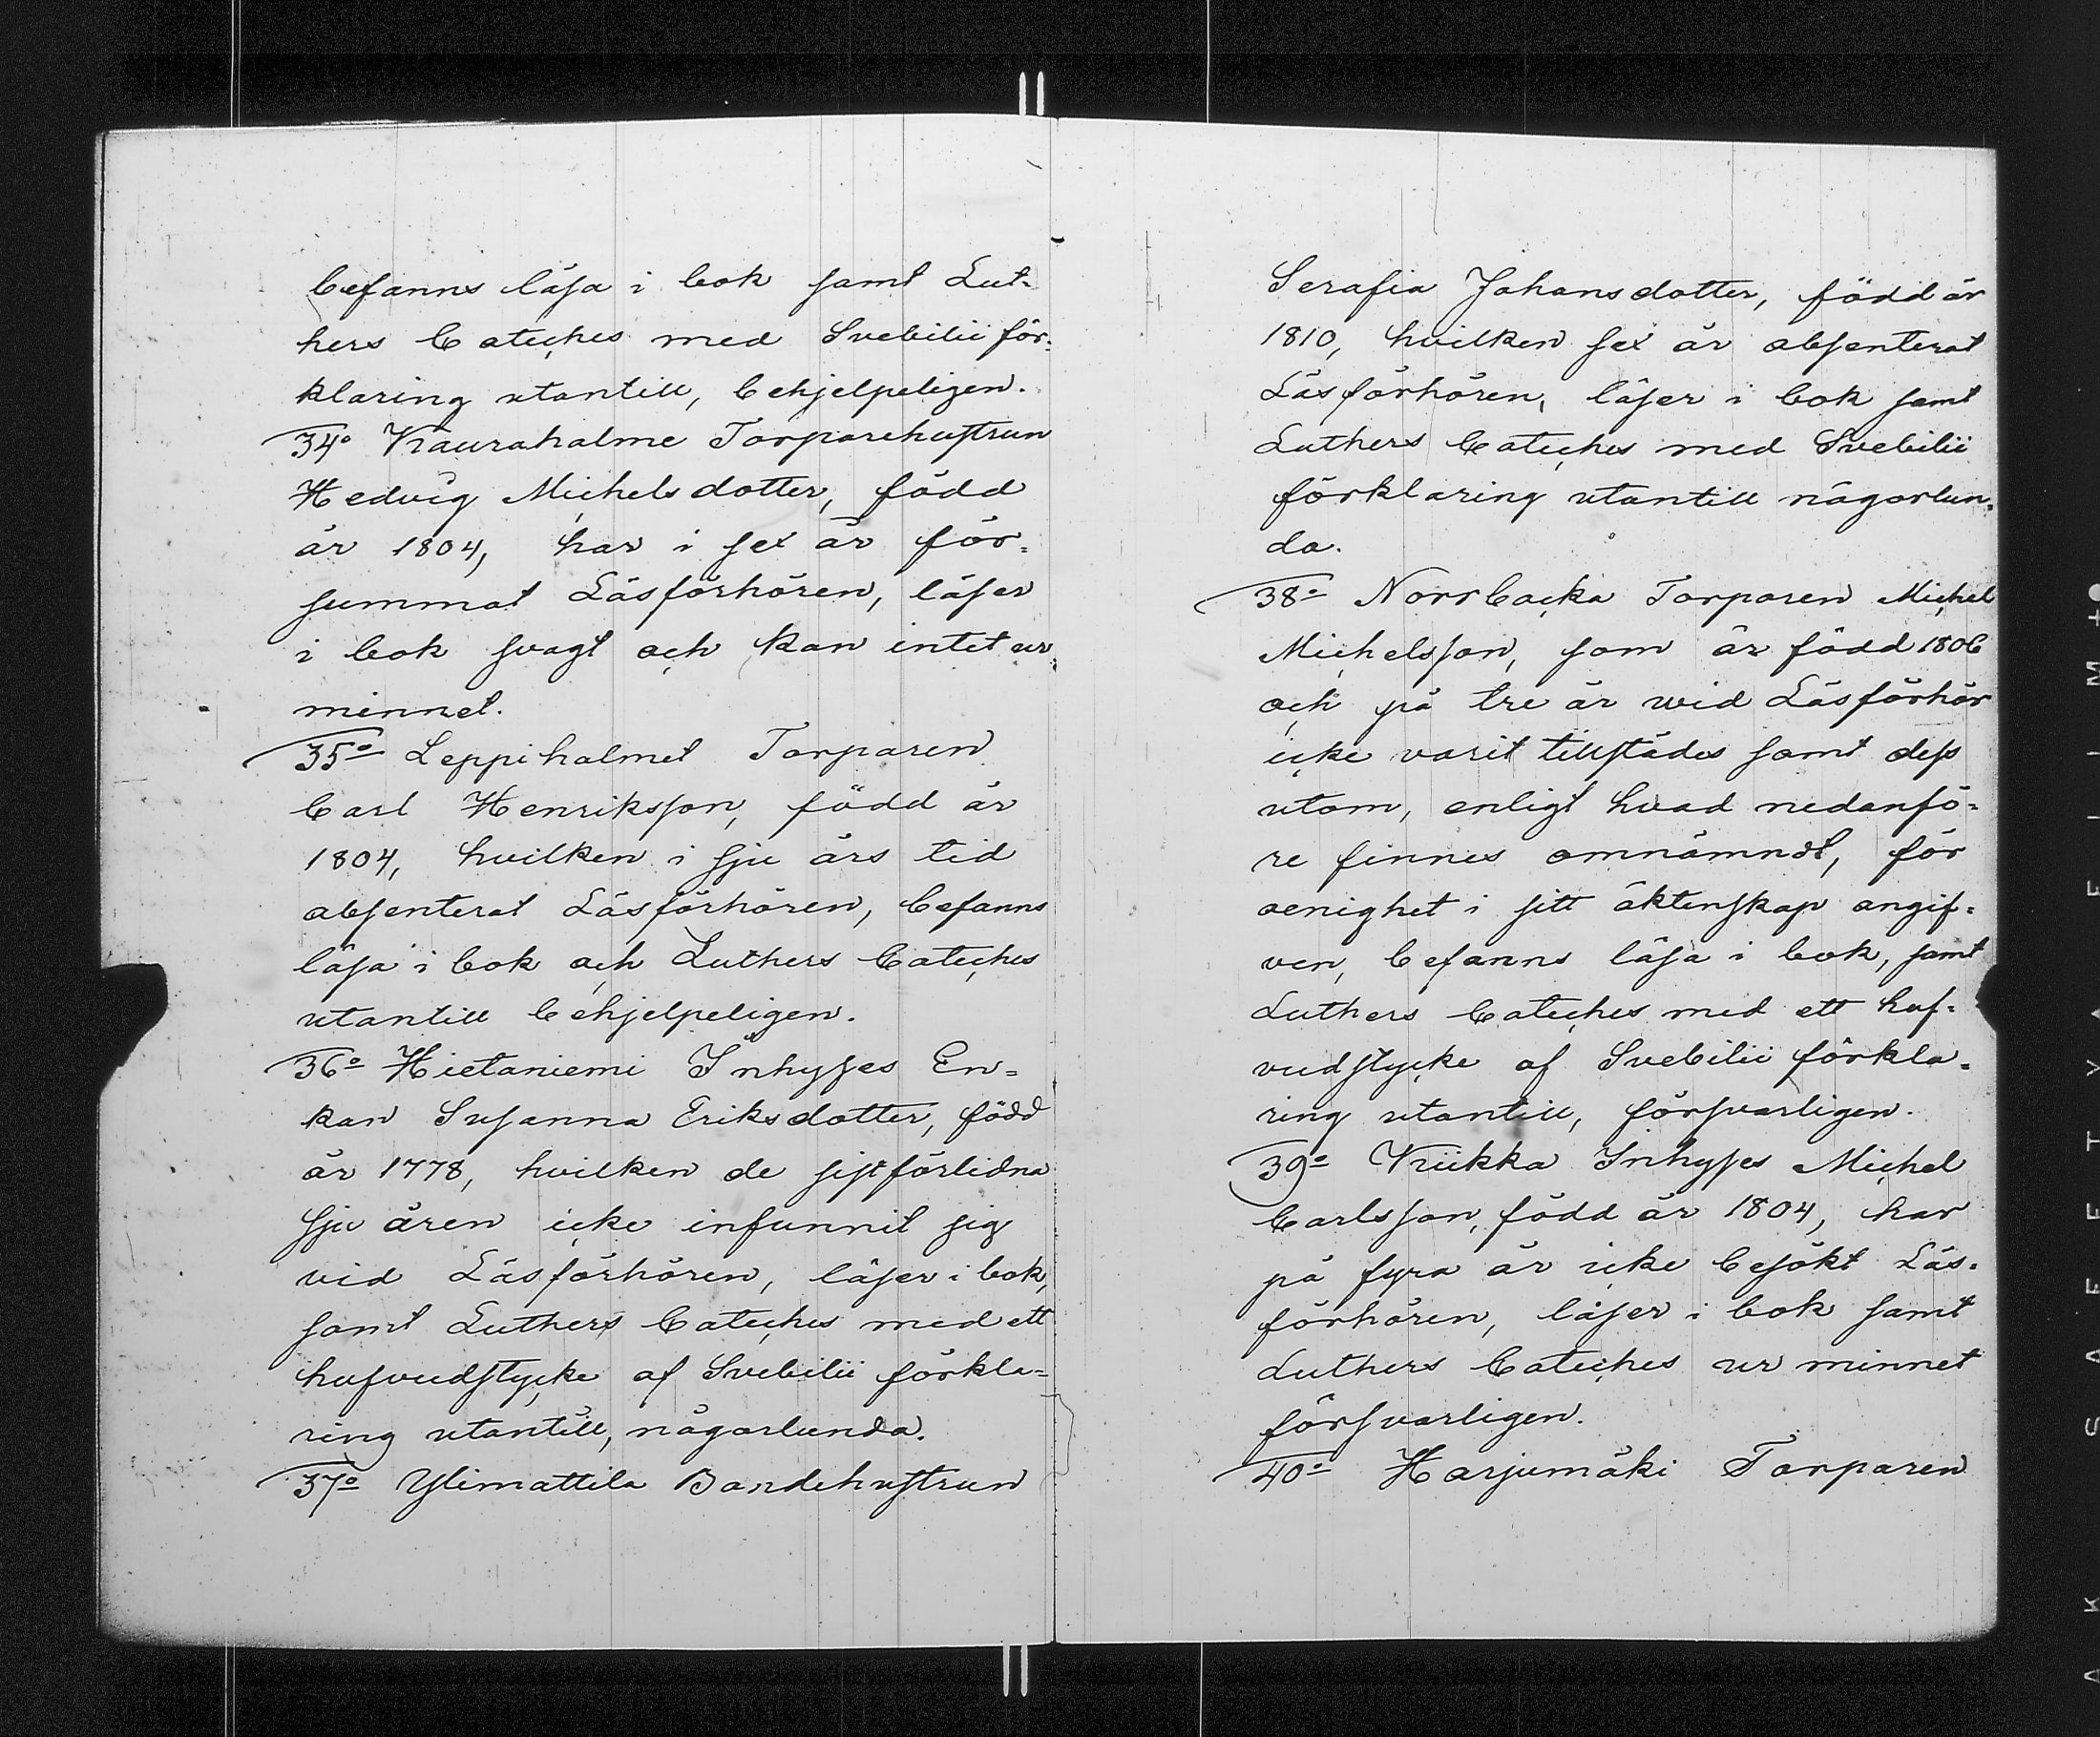 befanns läsa i bok samt Lut-
hers Cateches med Svebilii för-
klaring utantill, behjelpeligen.
34o Kauraholme Torparehustrun
Hedvig Michelsdotter, född
år 1804, har i sex år för-
summat Läsförhören, läser
i bok svagt och kan intet ur
minnet.
35o Leppiholmet Torparen
Carl Henriksson, född år
1804, hvilken i sju års tid
absenterat Läsförhören, befanns
läsa i bok och Luthers Cateches
utantill behjelpeligen.
36o Hietaniemi Inhyses En-
kan Susanna Eriksdotter, född
år 1778, hvilken de sistförlidna
sju åren icke infunnit sig
vid Läsförhören, läser i bok,
samt Luthers Cateches med ett
hufvudstycke af Svebilii förkla-
ring utantill, någorlunda.
37o Ylimattila Bondehustrun
Serafia Johansdotter, född år
1810, hvilken sex år absenterat
Läsförhören, läser i bok samt
Luthers Cateches med Svebilii
förklaring utantill någorlun-
da.
38o Norrbacka Torparen Michel
Michelsson, som är född 1806
och på tre år wid Läsförhör
icke varit tillstädes samt dess
utom, enligt hvad nedanfö-
re finnes omnämndt, för
oenighet i sitt äktenskap angif-
ven, befanns läsa i bok, samt
Luthers Cateches med ett huf-
vudstycke af Svebilii förkla-
ring utantill, försvarligen.
39o Kriikka Inhyses Michel
Carlsson, född år 1804, har
på fyra år icke besökt Läs-
förhören, läser i bok samt
Luthers Cateches ur minnet
försvarligen.
40o Harjumäki Torparen